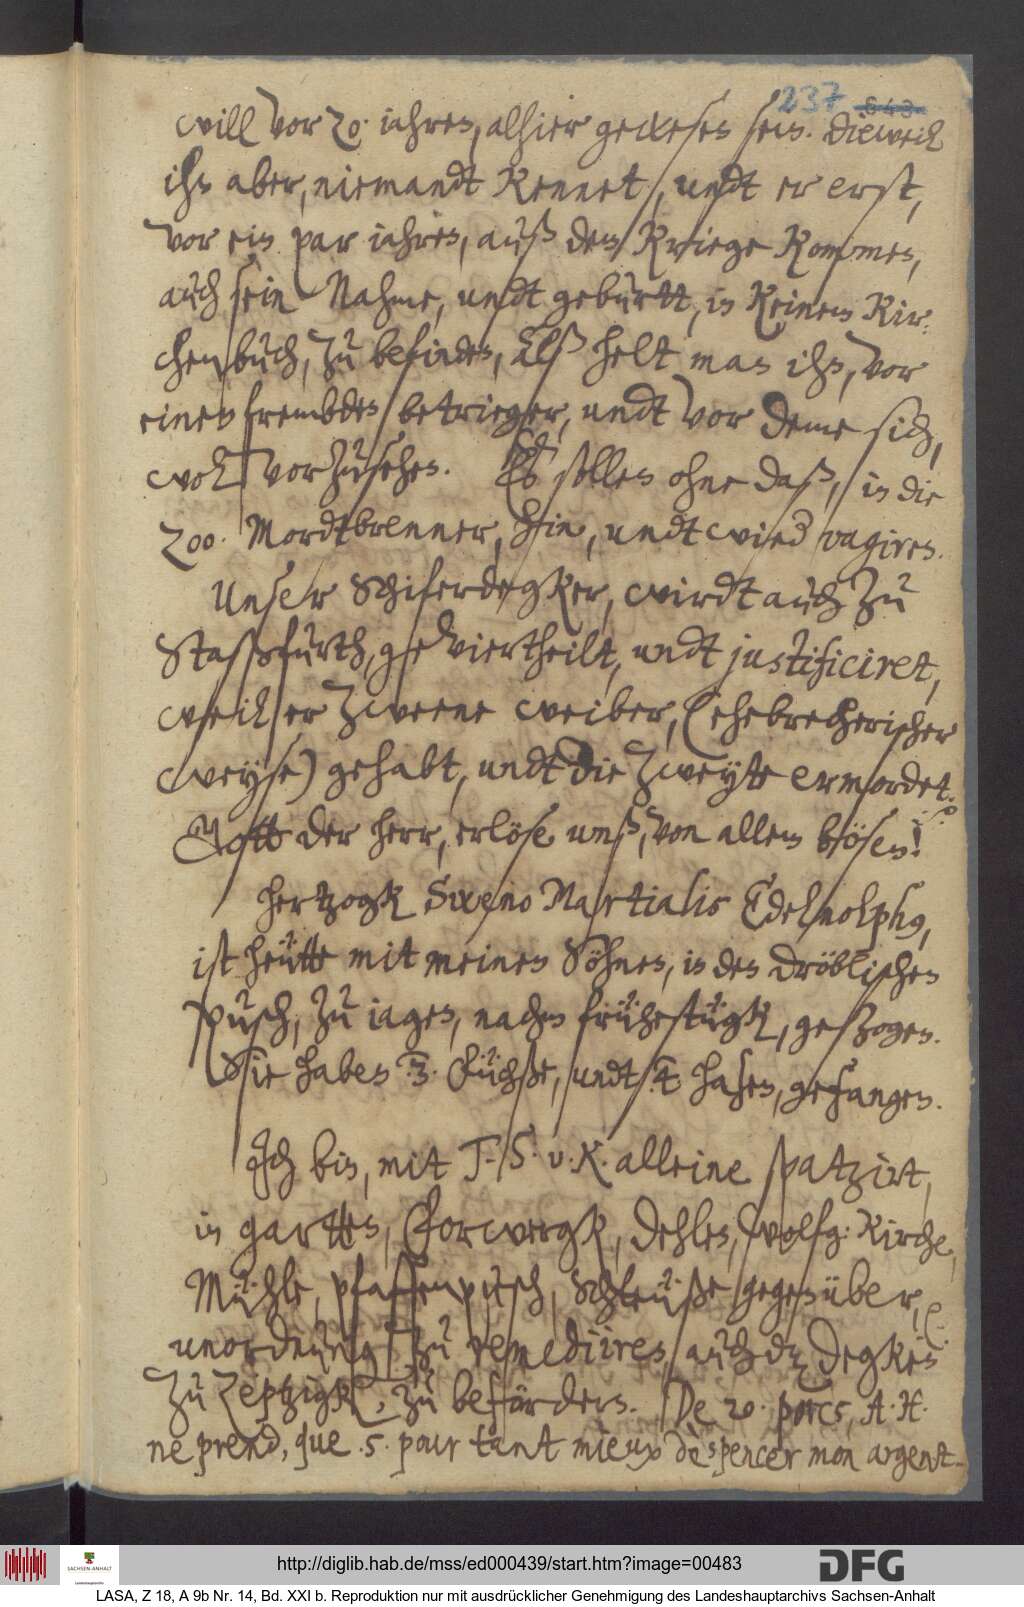 237 643.
will vor 20. iahren, alhier gewesen sein. Dieweil
ihn aber, niemandt kennet, undt er erst,
vor ein par iahren, auß dem Kriege kommen,
auch sein Nahme, undt geburtt, in keinem Kir-
chenbuch, zu befinden, Alß helt man ihn, vor
einen frembden betrieger, undt vor deme sich,
wol vorzusehen. Es sollen ohne daß, in die
200. Mordtbrenner, hin, undt wied vagiren.
Unser Schiferdegker, wirdt auch zu
Staßfurth, geviertheilt, undt justificiret,
weil er zweene weiber, (ehebrecherischer
weyse) gehabt, undt die zweyte ermordet.
Gott der herr, erlöse unß, von allem bösen!
Hertzogk Sixeno Martialis Edelnolphus,
ist heütte mit meinen Söhnen, in den Dröblischen
Pusch, zu iagen, nachm frühestügk, gezogen.
Sie haben 3. Füchße, undt 4 hasen, gefangen.
Ich bin, mit T. S. v. K. alleine spatzirt,
in gartten, Forwergk, Dehlen, wolfg: Kirche,
Mühle, pfaffenpusch, Schleuße gegenüber,
unordnung zu remediiren, auch dz Degken
zu Zeptzigk, zu befördern. De 20. porcs, A. H.
ne prend, que .5. pour tant mieux despencer mon argent
http://diglib.hab.de/mss/ed000439/start.htm?image=00483
DFG
SACHSEN-ANHALT
LASA, Z 18, A 9b Nr. 14, Bd. XXI b. Reproduktion nur mit ausdrücklicher Genehmigung des Landeshauptarchivs Sachsen-Anhalt